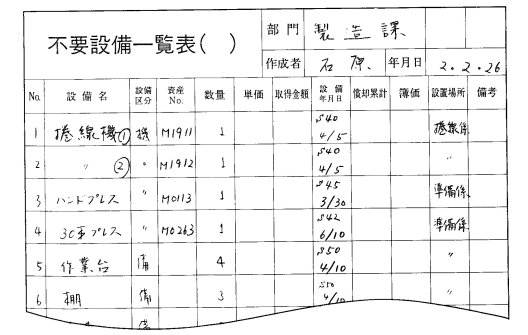 不要設備一覧表( )
部門 製造課
作成者 石原 年月日 2.2.26
No. 設備名 設備区分 資産No. 数量 単価 取得金額 設備年月日 償却累計 簿価 設置場所 備考
1 捲線機① 機 M1911 1 S40 4/5 捲線係
2 〃 ② 〃 M1912 1 S40 4/5 〃
3 ハンドプレス 〃 M0113 1 S45 3/30 準備係
4 30屯プレス 〃 M0263 1 S42 6/10 準備係
5 作業台 備 4 S50 4/10 〃
6 棚 備 3 S50 4/10 〃
備